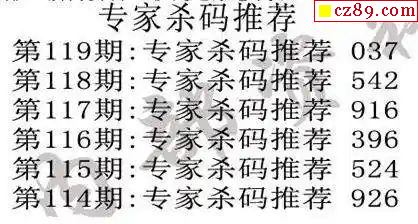 cz89.com
专家杀码推荐
第119期:专家杀码推荐 037
第118期:专家杀码推荐 542
第117期:专家杀码推荐 916
第116期:专家杀码推荐 396
第115期:专家杀码推荐 524
第114期:专家杀码推荐 926